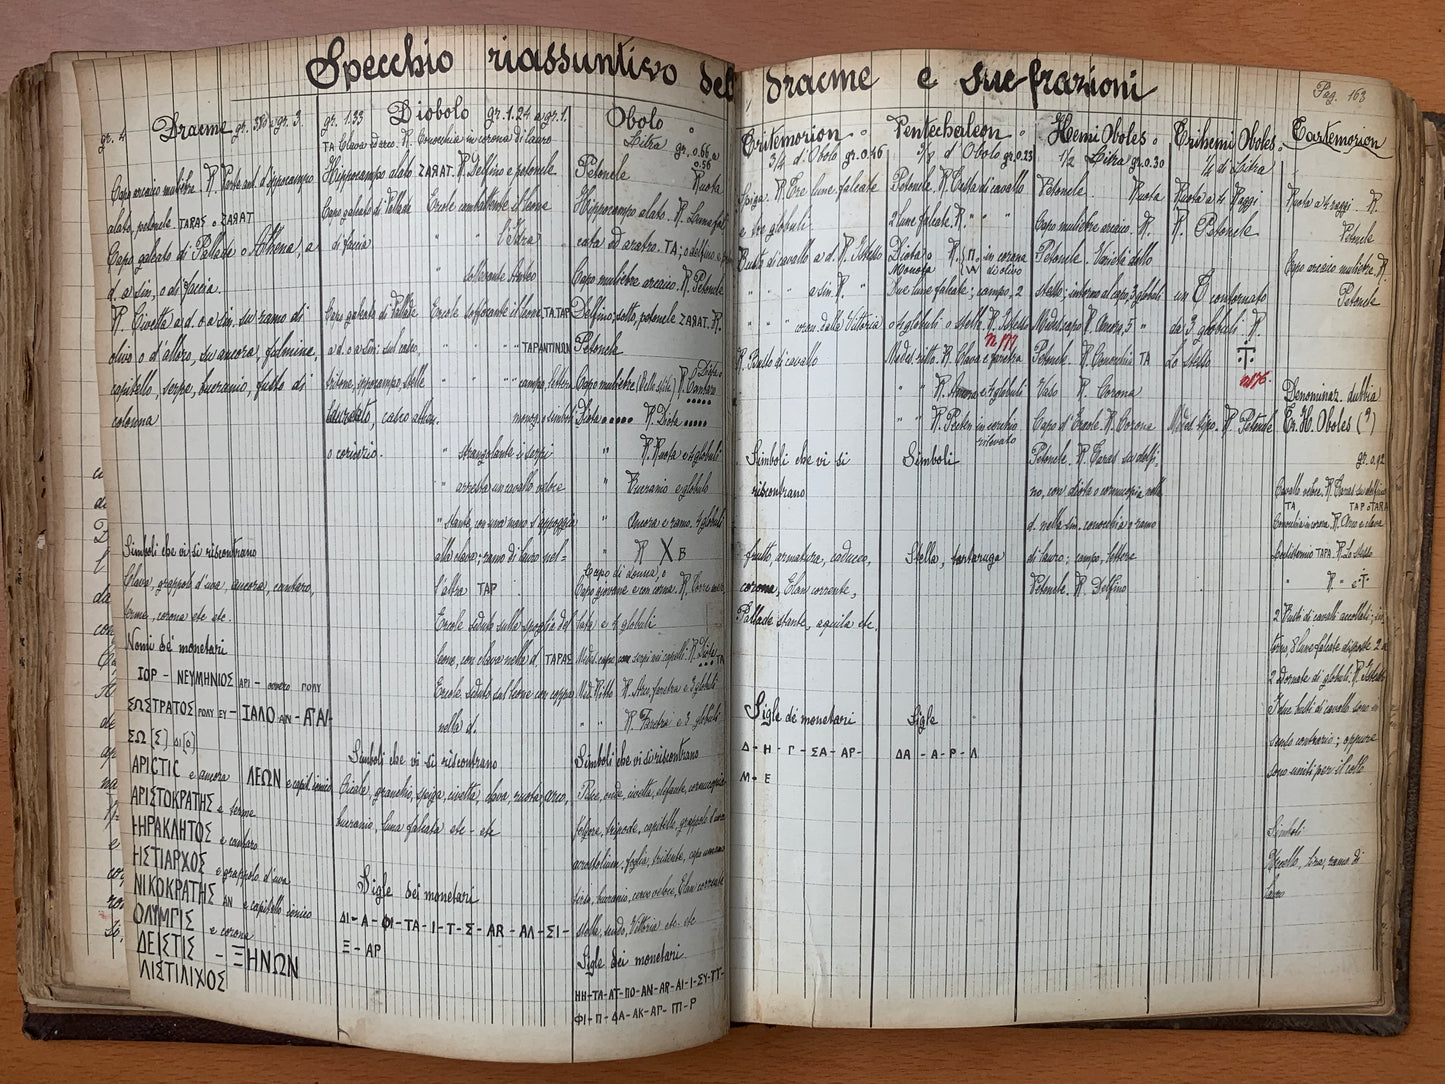 Specchio riassuntivo del
dracme e sue frazioni
Pag. 163
gr. 4 Dracme gr. 3
Capo arcaico muliebre R. Parte ant. d'ippocampo
alato, petoncle TARAS o ZARAT
Capo galeato di Pallade o Athena, a
d. a sin. o di faccia.
R. Civetta a d. o a sin. su ramo di
olivo o d'alloro, su ancora, fulmine,
capitello, serpe, bucranio, fusto di
colonna
Simboli che vi si riscontrano
Clava, grappolo d'uva, ancora, cantaro,
terme, corona etc etc.
Nomi dei monetari
ΙΟΡ - ΝΕΥΜΗΝΙΟΣ ΑΡΙ - ovvero ΠΟΛΥ
ΣΩΣΤΡΑΤΟΣ ΠΟΛΥ ΕΥ - ΙΑΛΟ ΑΝ -
ΣΩ (Σ) ΔΙ(Ο)
ΑΡΙCΤΙC e ancora ΛΕΩΝ e capit. ionico
ΑΡΙΣΤΟΚΡΑΤΗΣ e terme
ΗΡΑΚΛΗΤΟΣ e cantaro
ΗΣΤΙΑΡΧΟΣ e grappolo d'uva
ΝΙΚΟΚΡΑΤΗΣ ΑΝ e capitello ionico
ΟΛΥΜΠΙΣ e corona
ΔΕΙΣΤΙΣ - ΞΗΝΩΝ
ΛΙΣΤΙΛΙΧΟΣ
gr. 1.33 Diobolo gr. 1.24 a gr. 1.
TA Clava ed arco. R. Conocchia in corona di lauro
Hippocampo alato ZARAT. R. Delfino e petoncle
Capo galeato di Pallade Ercole combattente il leone
di faccia " " l'Idra
" sollevante Anteo
Capo galeato di Pallade Ercole soffocante il leone, TA, TAP
a d. o a sin. sul casco, " " TAPANTINΩN
tritone, ippocampo, stelle " " campo, lettere
laureato, casco alato, monog. o simboli
o corintio. " strangolante i serpi
" arresta un cavallo veloce
" stante, con una mano s'appoggia
alla clava; ramo di lauro nel-
l'altra TAP
Ercole seduto sulla spoglia del
leone, con clava nella d. TAPAΣ
Ercole, seduto sul leone con coppa
nella d.
Simboli che vi si riscontrano
Cicala, granchio, spiga, civetta, clava, ruota, arco,
bucranio, luna falcata etc - etc
Sigle dei monetari
ΔΙ - Α - ΦΙ - ΤΑ - Ι - Τ - Σ - ΑR - ΑΛ - ΣΙ -
Ξ - ΑΡ
Obolo
Litra gr. 0.66 a
0.56
Petoncle Ruota
Hippocampo alato. R. Luna fal-
cata ed aratro. TA; o delfino e
Capo muliebre arcaico. R. Petoncle
Delfino; sotto, petoncle ZARAT. R.
Petoncle
Capo muliebre (Della stile) R. Diota o Cantaro
Diota ..... R. Diota .....
" R. Ruota e 4 globuli
" Bucranio e globulo
" Ancora e ramo. 4 globuli
" R. X B
Capo di donna, o
Capo giovane e con corna. R. Torre mer-
lata e 4 globuli
Med. capo, con serpi nei capelli. R. Diota TA
Med. Ritto R. Arco, faretra e 3 globuli
" R. Faretra e 3 globuli
Simboli che vi si riscontrano
Pesce, onde, civetta, elefante, cornucopia
folgore, tripode, capitello, grappolo d'uva
acrostolium; foglia, tridente, capo umano
tirso, bucranio, cervo veloce, Elan corrente
stella, scudo, Vittoria etc. etc
Sigle dei monetari.
ΗΗ-ΤΑ-ΛΤ-ΠΟ-ΑΝ-ΑR-ΑΙ-Ι-ΣΥ-ΤΤ-
ΦΙ-Π-ΔΑ-ΑΚ-ΑΓ-ΠΙ-Ρ
Tritemorion
3/4 d'Obolo gr. 0.46
Spiga. R. Tre lune falcate
e tre globuli
Busto di cavallo a d. R. Stesso
" " " a sin. R. "
" " coron. dalla Vittoria
R. Busto di cavallo
Simboli che vi si
riscontrano
frutto, armatura, caduceo,
corona, Elan corrente,
Pallade stante, aquila etc.
Sigle dei monetari
Δ - Η - Γ - ΣΑ - ΑΡ -
Μ - Ε
Pentechalcon
5/8 d'Obolo gr. 0.23
Petoncle. R. Testa di cavallo
2 lune falcate. R. " " "
Diota o R. Π. in corona
Monota W di olivo
Due lune falcate; campo, 2
o 4 globuli o stella. R. Stesso
n. 177
Medes. ritto. R. Clava e faretra
" " R. Ancora e 4 globuli
" " R. Pecten in cerchio
rilevato
Simboli
Stella, tartaruga
Sigle
ΔΑ - Α - Ρ - Λ
Hemi Oboles
1/2 Litra gr. 0.30
Petoncle. Ruota
Capo muliebre arcaico. R.
Petoncle. Varietà dello
stello: intorno al capo, 3 globuli
Medes. capo R. Ancora, 5 "
Petoncle. R. Conocchia TA
Vaso R. Corona
Capo d'Ercole. R. Corona
Petoncle. R. Taras su delfi-
no, con diota o cornucopia nella
d. nella sin. conocchia o ramo
di lauro; campo, lettere
Petoncle. R. Delfino
Trihemi Oboles
1/4 di Litra
Ruota a 4 Raggi
R. Petoncle
un T contornato
da 3 globuli. R.
Lo stesso T
n. 176
Medes. tipo. R. Petoncle
Tartemorion
Ruota a 4 raggi. R.
Petoncle
Capo arcaico muliebre R.
Petoncle
Denominaz. dubbia
Tr. H. Oboles (?)
gr. 0.12
Cavallo veloce. R. Taras su delfino
TA TAP o TARA
Conocchia in corona. R. Arco e clava
Locustomio TAPA. R. Lo stesso
" R. " e T.
2 Busti di cavallo accollati; in-
torno 3 lune falcate disposte 2 a
2 ornate di globuli. R. Stesso
I due busti di cavallo sono in
senso contrario; oppure
sono uniti per il collo
Simboli
Uccello, lira, ramo di
lauro